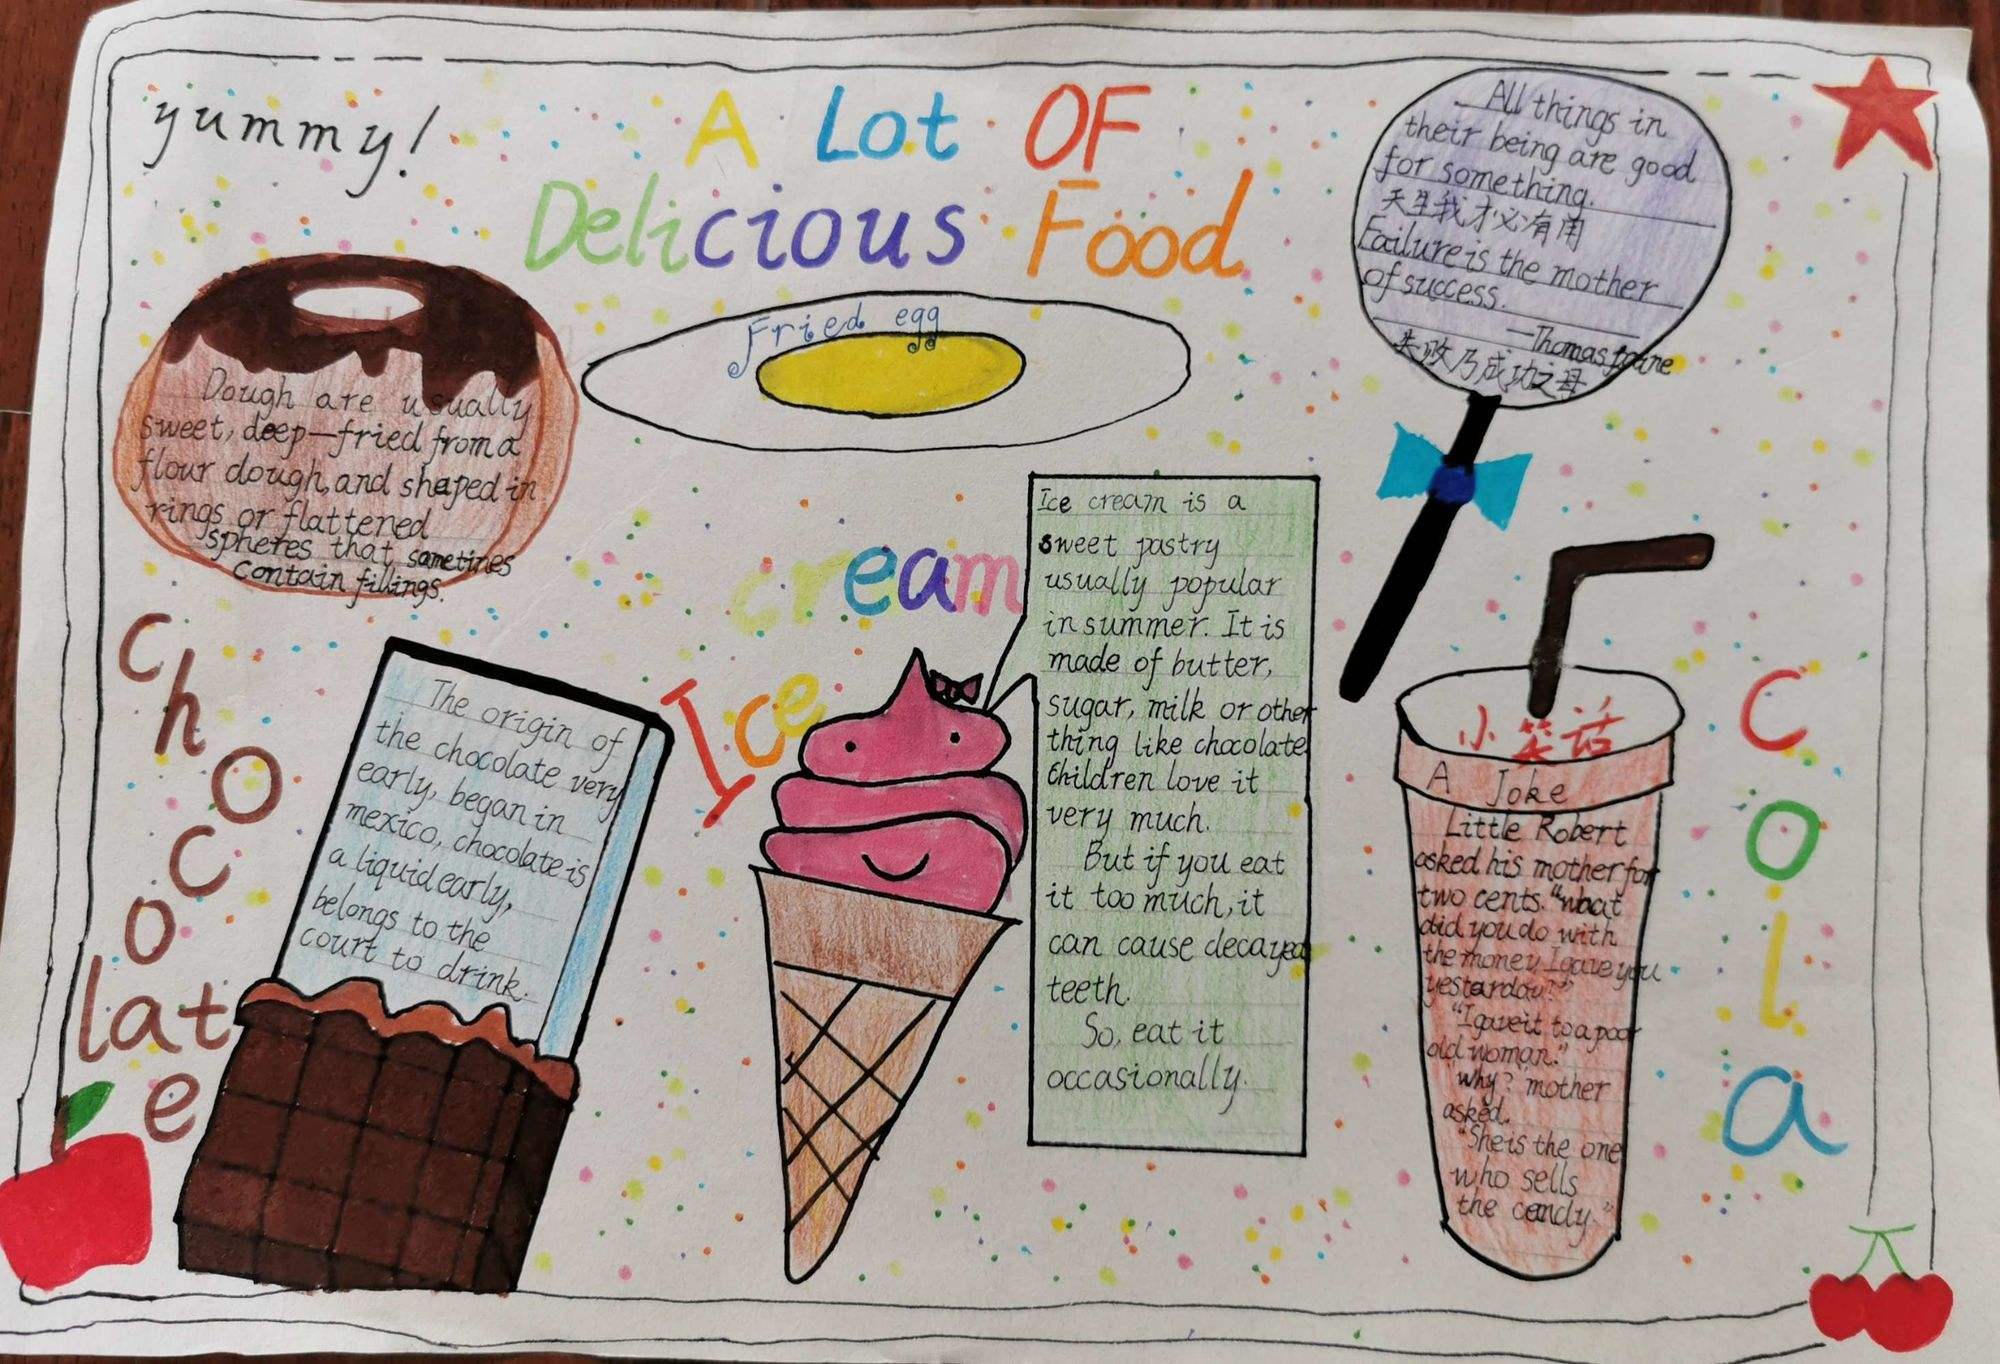 yummy!
A Lot OF
Delicious Food
Fried egg
Dough are usually
sweet, deep-fried from a
flour dough, and shaped in
rings or flattened
spheres that sometimes
contain fillings.
All things in
their being are good
for something.
天生我才必有用
Failure is the mother
of success.
—Thomas paine
失败乃成功之母
chocolate
The origin of
the chocolate very
early, began in
mexico, chocolate is
a liquid early,
belongs to the
court to drink.
Ice cream
Ice cream is a
sweet pastry
usually popular
in summer. It is
made of butter,
sugar, milk or other
thing like chocolate.
Children love it
very much.
But if you eat
it too much, it
can cause decayed
teeth.
So, eat it
occasionally.
小笑话
A Joke
Little Robert
asked his mother for
two cents. "what
did you do with
the money I gave you
yesterday?"
"I gave it to a poor
old woman."
"why? mother
asked.
"She is the one
who sells
the candy."
Cola